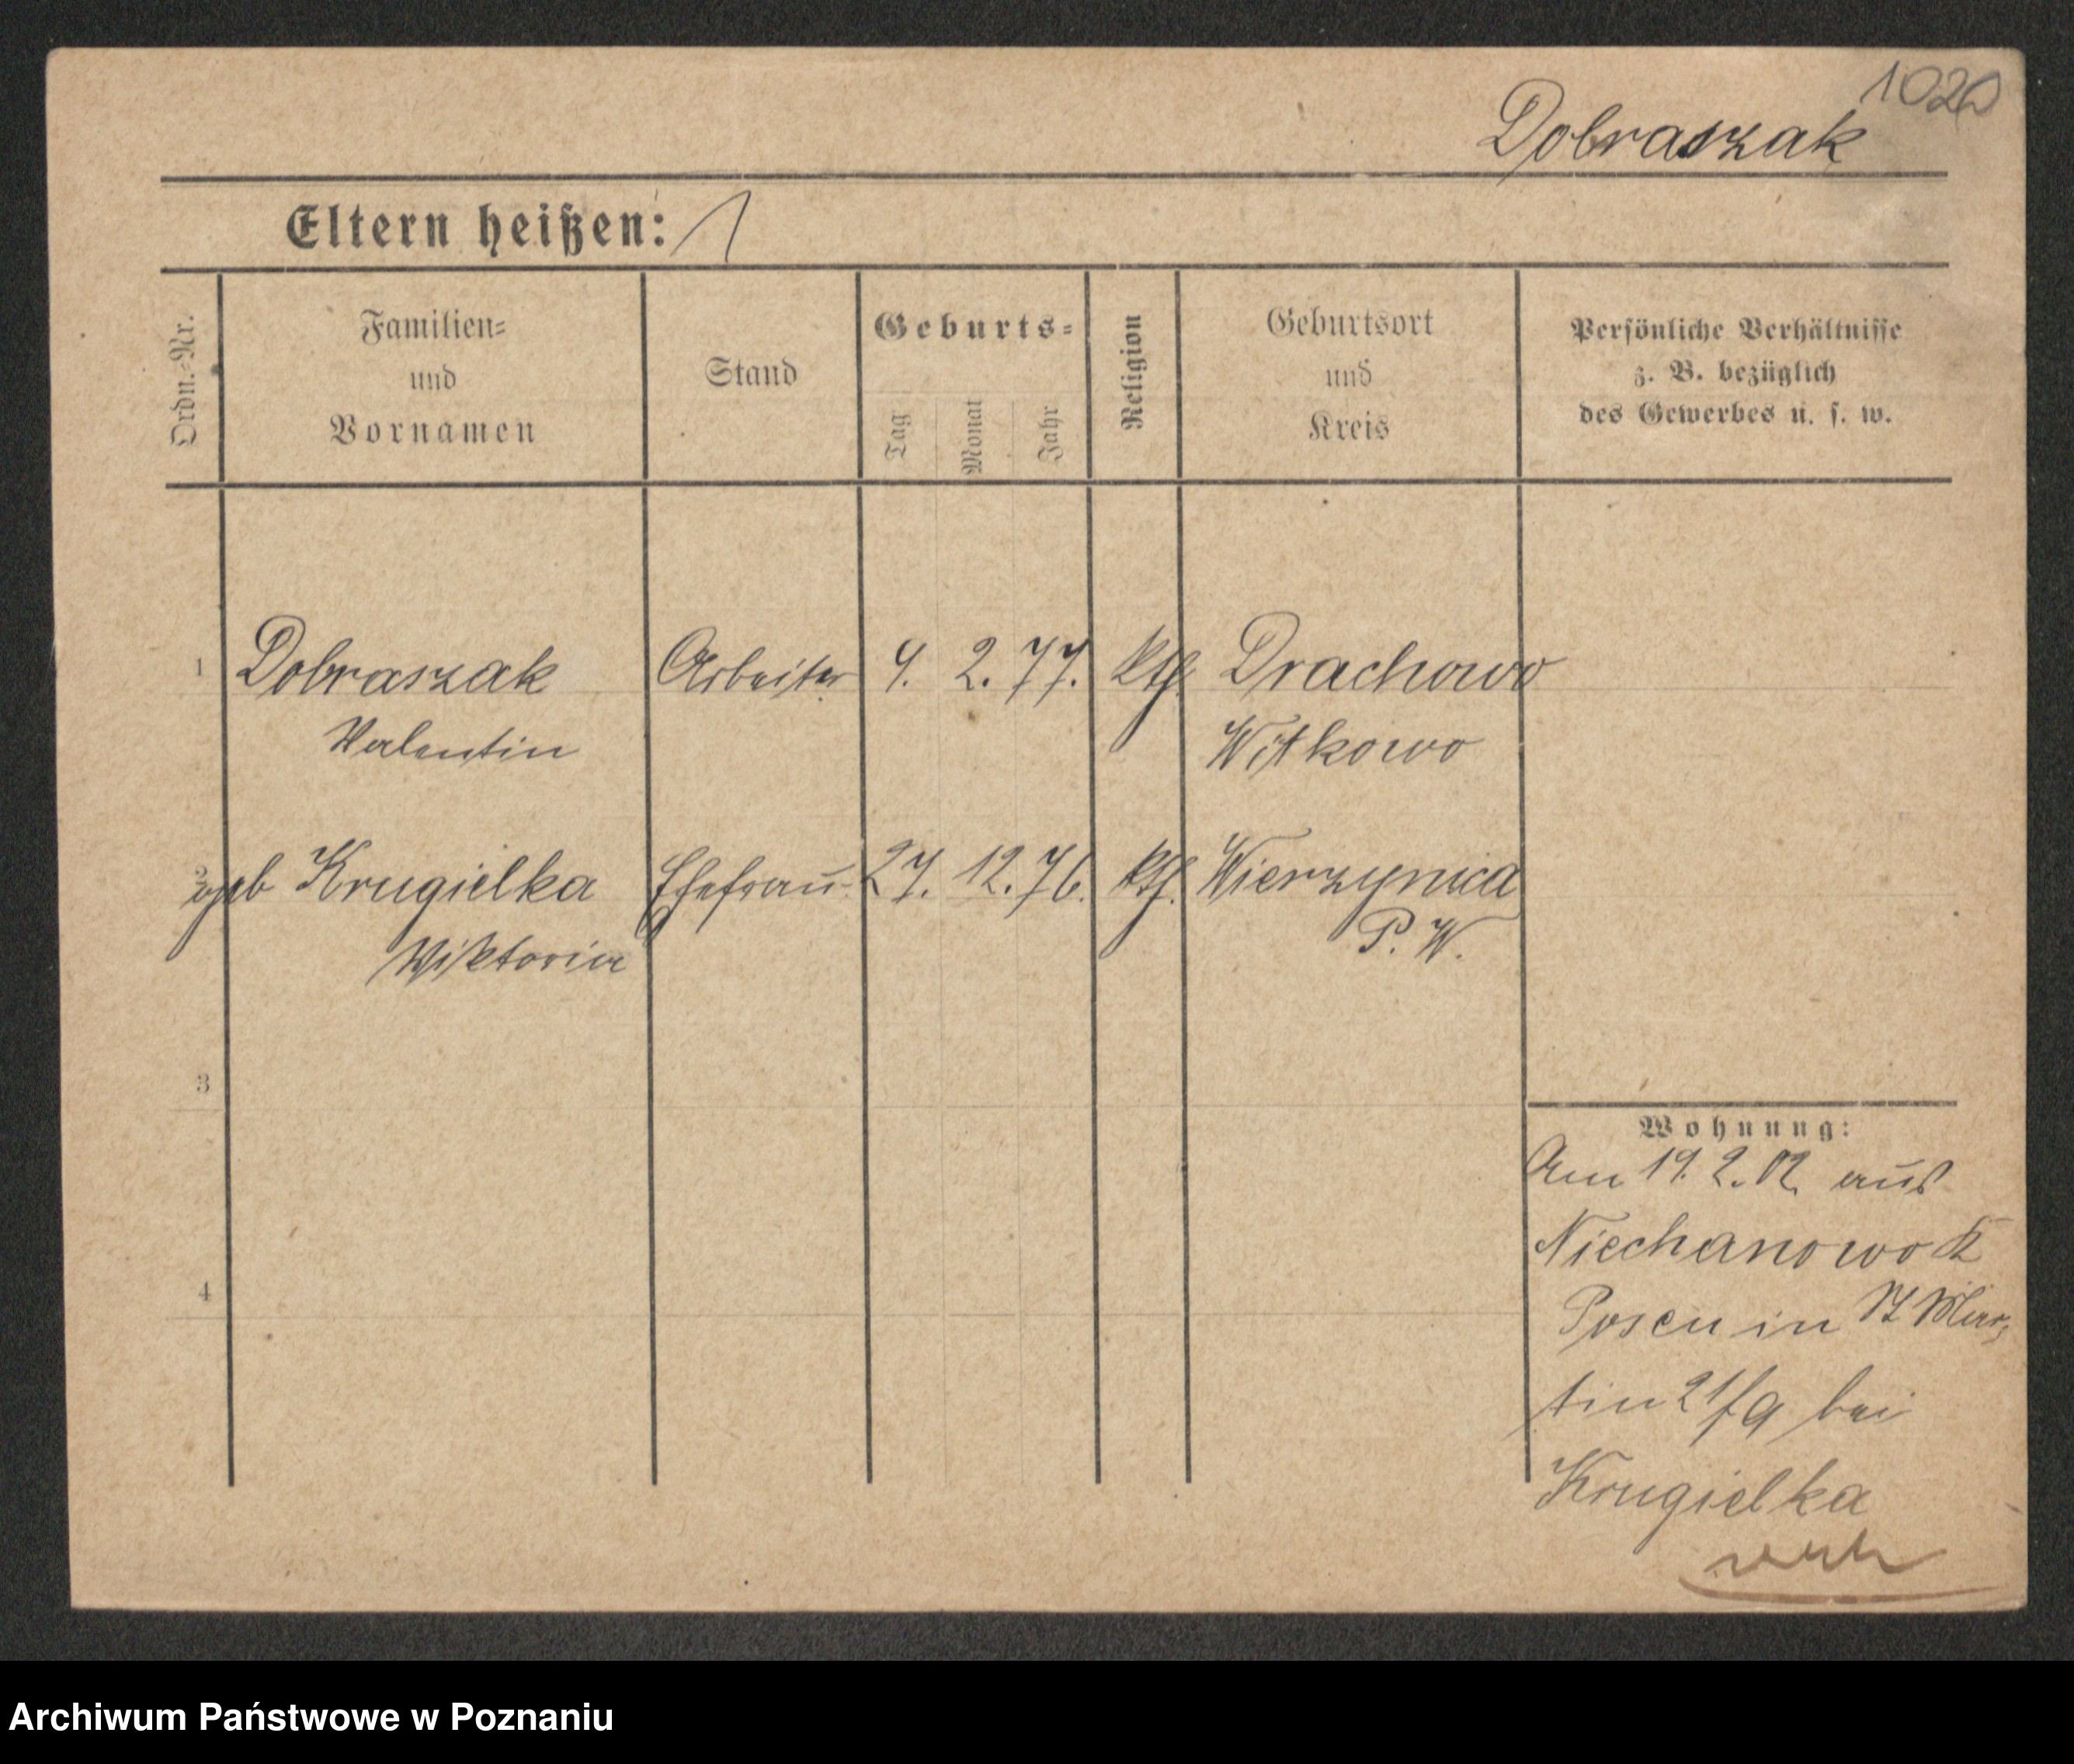 1020
Dobraszak
Eltern heißen:
Ordn.-Nr.
Familien-
und
Vornamen
Stand
Geburts-
Tag
Monat
Jahr
Religion
Geburtsort
und
Kreis
Persönliche Verhältnisse
z. B. bezüglich
des Gewerbes u. s. w.
1 Dobraszak Arbeiter 4. 2. 77. kth. Drachowo
Valentin Witkowo
2 geb Krugielka Ehefrau 27. 12. 76. kth. Wierzynica
Wiktoria P. W.
3
4
Wohnung:
Am 19. 2. 02 aus
Niechanowo K
Posen in St Mar-
tin 21/9 bei
Krugielka
Archiwum Państwowe w Poznaniu